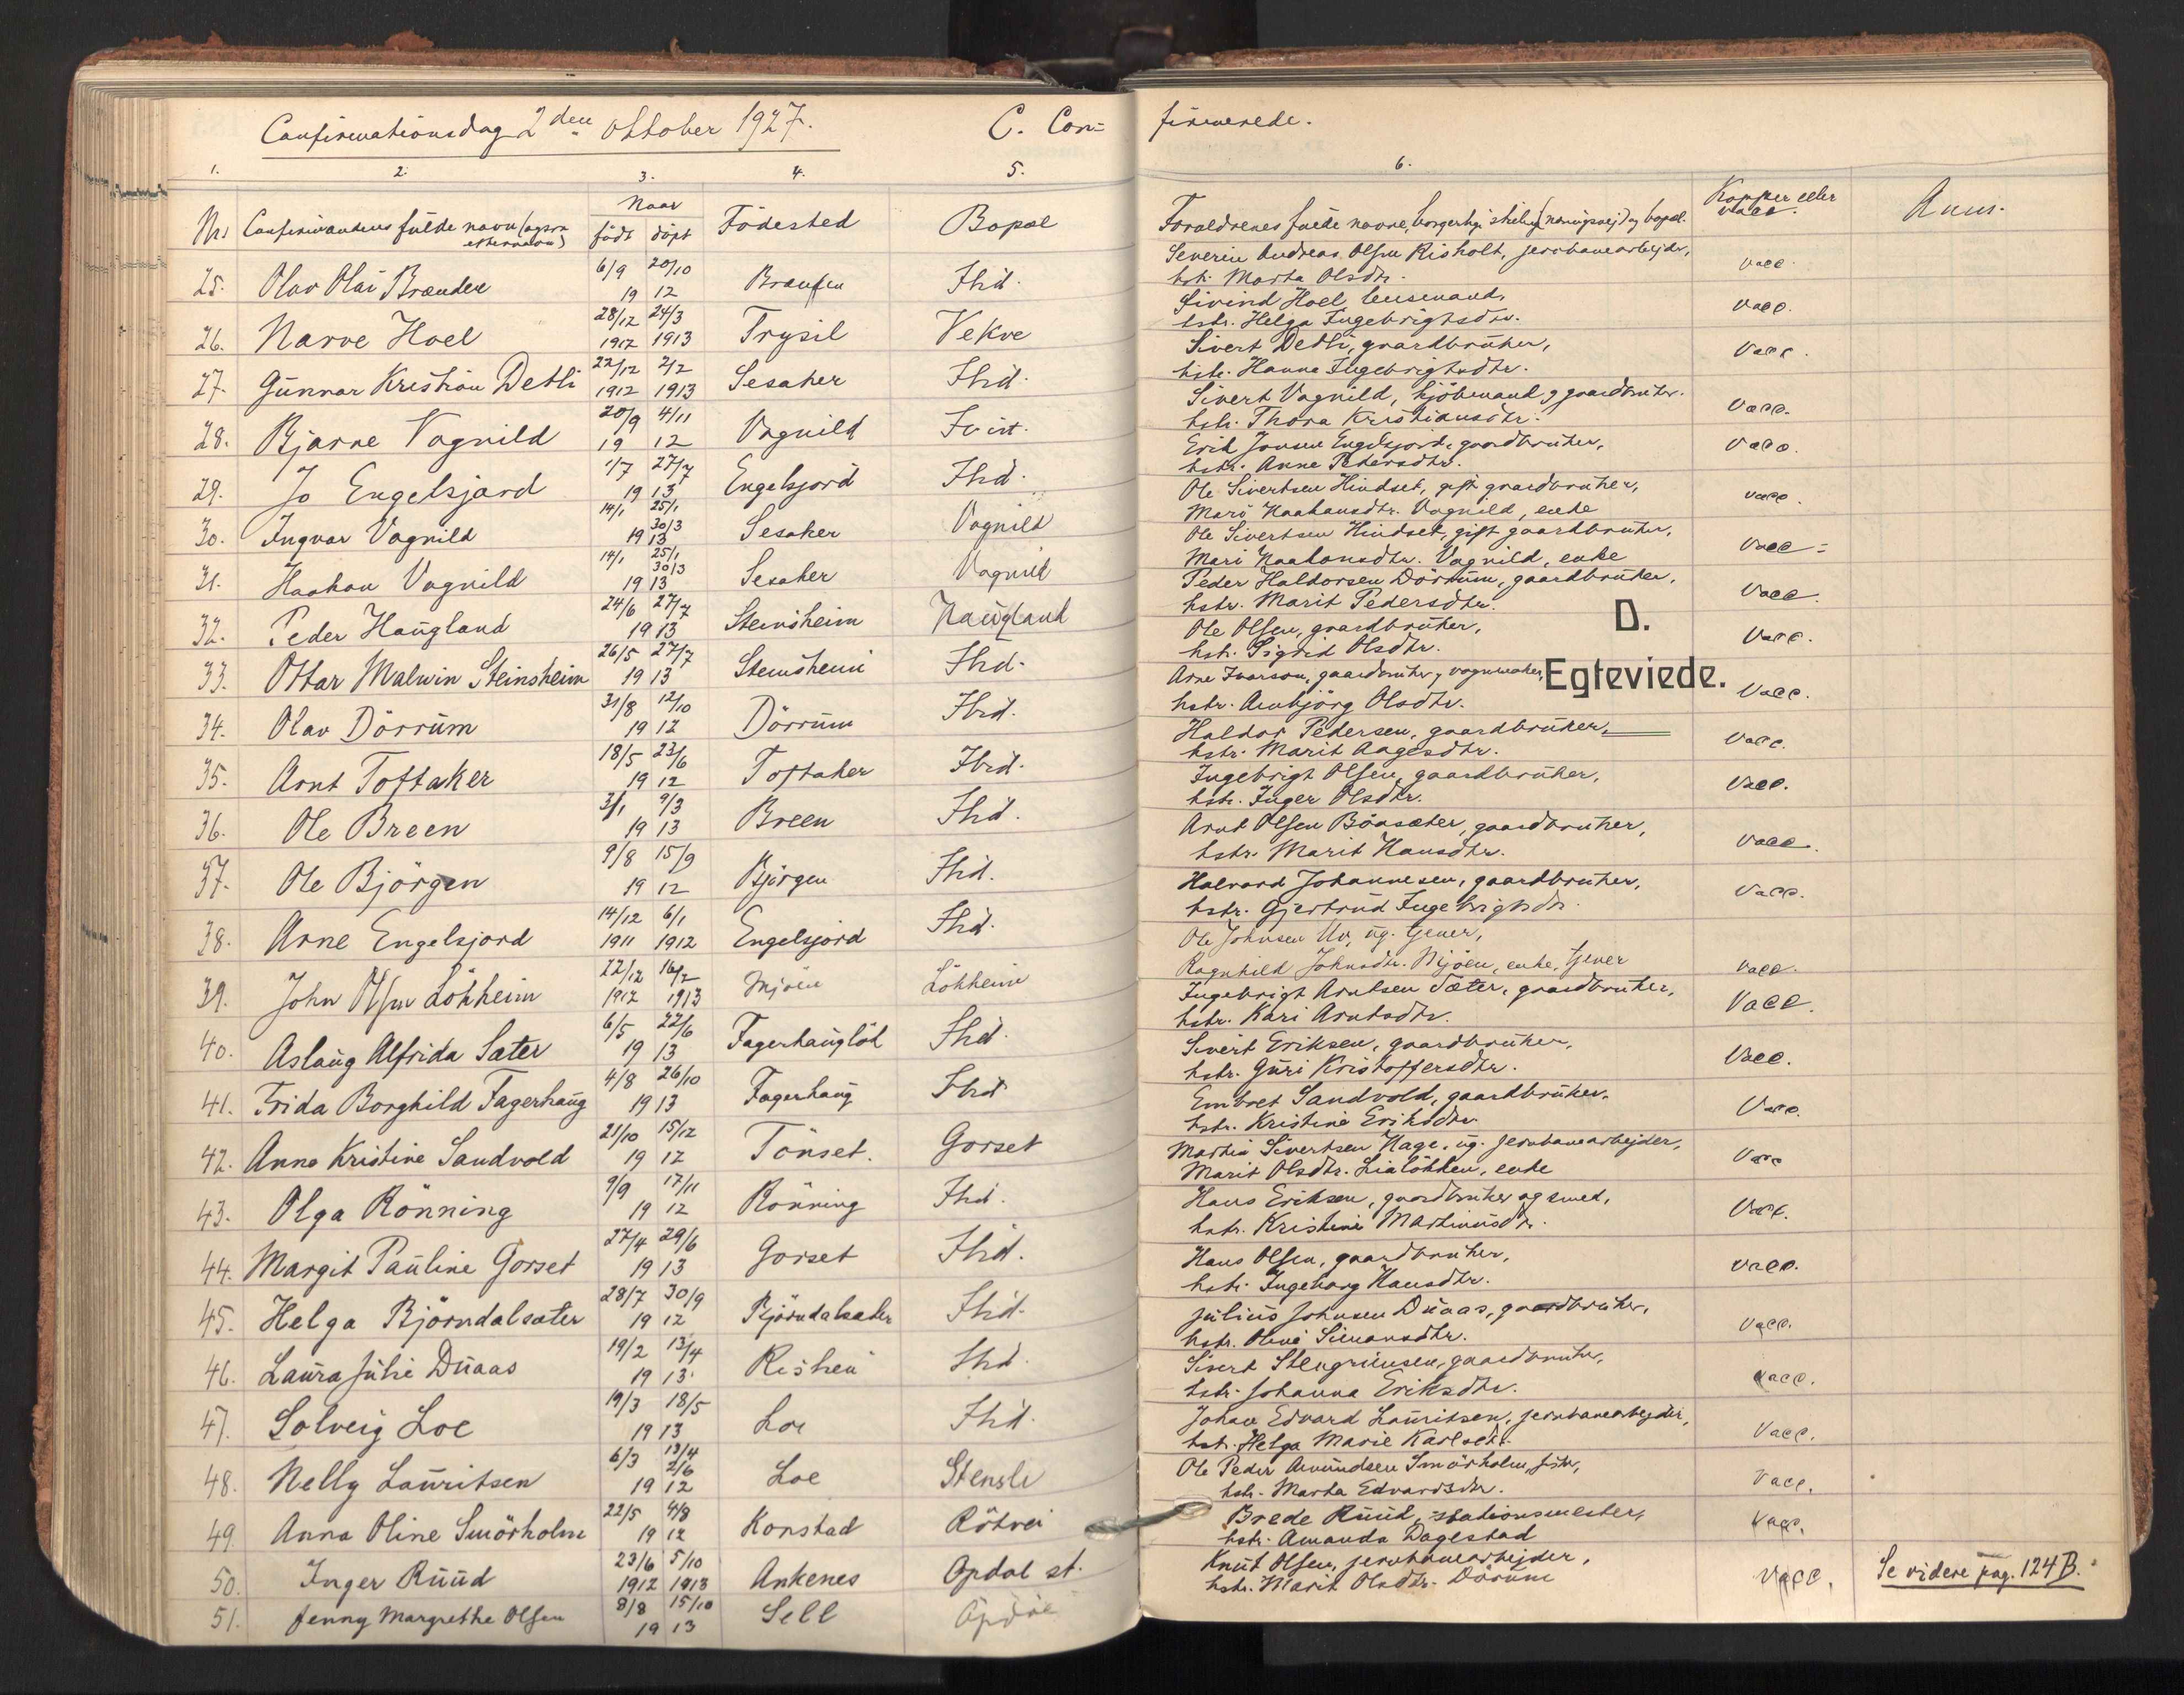 Confirmationsdag 2den oktober 1927.
C. Con=
firmerede.
1. 2. 3. 4. 5. 6.
Nr. Confirmandens fulde navn (ogsaa efternavn) Naar født døpt Födested Bopæl Forældrenes fulde navne, borgerlige stilling (næringsvej) og bopæl. Kopper eller vacc. Anm.
25. Olav Olai Brænden 6/9 20/10 19 12 Brænden Ibid. Severin Andreas Olsen Risholt, jernbanearbejder, hstr. Marta Olsdtr. vacc.
26. Narve Hoel 28/12 24/3 1912 1913 Trysil Vekve Eivind Hoel, lensmand, hstr. Helga Ingebrigtsdtr. vacc.
27. Gunnar Kristian Detli 22/12 2/2 1912 1913 Sesaker Ibid. Sivert Detli, gaardbruker, hstr. Hanna Ingebrigtsdtr. vacc.
28. Bjarne Vognild 20/9 4/11 19 12 Vognild Ibid. Sivert Vognild, kjöbmand og gaardbruker. hstr. Thora Kristiansdtr. vacc.
29. Jo Engelsjord 1/7 27/7 19 13 Engelsjord Ibid. Erik Jonsen Engelsjord, gaardbruker, hstr. Anne Pedersdtr. vacc.
30. Ingvar Vognild 14/1 25/1 30/3 19 13 Sesaker Vognild Ole Sivertsen Hindset, gift gaardbruker, Mari Haakonsdtr. Vognild, enke vacc.
31. Haakon Vognild 14/1 25/1 30/3 19 13 Sesaker Vognild Ole Sivertsen Hindset, gift gaardbruker, Mari Haakonsdtr. Vognild, enke vacc.
32. Peder Haugland 24/6 27/7 19 13 Stensheim Haugland Peder Haldorsen Dörrum, gaardbruker, hstr. Marit Pedersdtr. vacc.
D.
33. Ottar Malvin Steinsheim 26/5 27/7 19 13 Stensheim Ibid. Ole Olsen, gaardbruker, hstr. Sigrid Olsdtr. vacc.
Egteviede.
34. Olav Dörrum 31/8 12/10 19 12 Dörrum Ibid. Arne Ivarson, gaardbruker og vognmaker, hstr. Arnbjörg Olsdtr. vacc.
35. Arnt Toftaker 18/5 23/6 19 12 Toftaker Ibid. Haldor Pedersen, gaardbruker, hstr. Marit Aagesdtr. vacc.
36. Ole Breen 3/1 9/3 19 13 Breen Ibid. Ingebrigt Olsen, gaardbruker, hstr. Inger Olsdtr. vacc.
37. Ole Björgen 9/8 15/9 19 12 Björgen Ibid. Arnt Olsen Böasæter, gaardbruker, hstr. Marit Hansdtr. vacc.
38. Arne Engelsjord 14/12 6/1 1911 1912 Engelsjord Ibid. Halvard Johannesen, gaardbruker, hstr. Gjertrud Ingebrigtsdtr. vacc.
39. John Olsen Lökheim 22/12 16/2 1912 1913 Mjöen Lökheim Ole Johnsen Uv, ug. tjener, Ragnhild Johnsdtr. Mjöen, enke, tjener vacc.
40. Aslaug Alfrida Sæter 6/5 22/6 19 13 Fagerhauglök Ibid. Ingebrigt Arntsen Sæter, gaardbruker, hstr. Kari Arntsdtr. Vacc.
41. Frida Borghild Fagerhaug 4/8 26/10 19 13 Fagerhaug Ibid. Sivert Eriksen, gaardbruker, hstr. Guri Kristoffersdtr. Vacc.
42. Anna Kristine Sandvold 21/10 15/12 19 12 Tönset. Gorset Embret Sandvold, gaardbruker, hstr. Kristine Eriksdtr. Vacc.
43. Olga Rönning 9/9 17/11 19 12 Rönning Ibid. Martin Sivertsen Hage, ug. jernbanearbejder, Marit Olsdtr. Lialökken, enke Vacc
44. Margit Pauline Gorset 27/4 29/6 19 13 Gorset Ibid. Hans Eriksen, gaardbruker og smed, hstr. Kristine Martinusdtr. Vacc.
45. Helga Björndalsæter 28/7 30/9 19 12 Björndalsæter Ibid. Hans Olsen, gaardbruker, hstr. Ingeborg Hansdtr. vacc.
46. Laura Julie Duaas 19/2 13/4 19 13 Ibid. Julius Johnsen Duaas, gaardbruker, hstr. Oline Simonsdtr. vacc.
47. Solveig Loe 19/3 18/5 19 13 Loe Ibid. Sivert Stengrimsen, gaardbruker, hstr. Johanna Eriksdtr. vacc.
48. Nelly Lauritsen 6/3 13/4 2/6 19 12 Loe Stensli Johan Edvard Lauritsen, jernbanearbejder, hstr. Helga Marie Karlsdtr. Vacc.
49. Anna Oline Smörholm 22/5 4/8 19 12 Konstad Rötvei Ole Peder Amundsen Smörholm, hstr. Marta Edvardsdtr. Vacc.
50. Inger Ruud 23/6 5/10 1912 1913 Ankenes Opdal st. Brede Ruud, stationsmester, hstr. Amanda Dagestad Vacc.
51. Jenny Margrethe Olsen 8/8 15/10 19 13 Sell Opdal Knut Olsen, jernbanearbejder, hstr. Marit Olsdtr. Dörum Vacc. Se videre pag. 124 B.